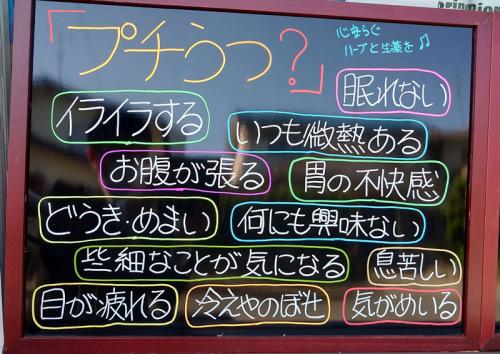 「プチうつ?」
心安らぐ
ハーブと生薬を♫
眠れない
イライラする
いつも微熱ある
お腹が張る
胃の不快感
どうき・めまい
何にも興味ない
些細なことが気になる
息苦しい
目が疲れる
冷えやのぼせ
気がめいる